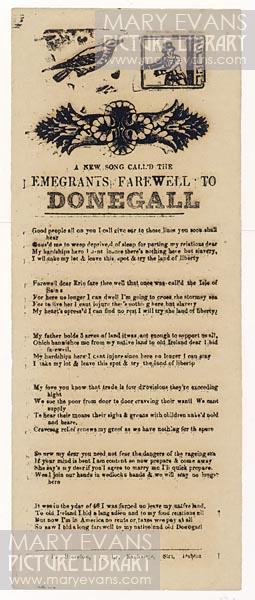 MARY EVANS
PICTURE LIBRARY
A NEW SONG CALL'D THE
EMEGRANTS FAREWELL TO
DONEGALL
Good people all on you I call give ear to those lines you soon shall
hear
me to weep deprived of sleep for parting my relations dear
My hardships here I cant injure there's nothing here but slavery,
I will take my lot & leave this spot & try the land of liberty
Farewell dear Erin fare thee well that once was call'd the Isle of
Saints
For here no longer I can dwell I'm going to cross the stormy sea
For to live here I cant injure there's nothing here but slavery
My heart's opress'd I can find no rest I will try the land of liberty;
My father holds 5 acres of land it was not enough to support us all,
Which banishes me from my native land to old Ireland dear I bid
farewell,
My hardships here I cant injure since here no longer I can stay
I take my lot & leave this spot & try the land of liberty
My love you know that trade is low provisions they're exceeding
hight
We see the poor from door to door craving their want! We cant
supply
To hear their moans their sighs & groans with children naked cold
and beare,
Craveing relief renews my greef as we have nothing for to spare
So now my dear you need not fear the dangers of the rageing sea
If your mind is bent I am content so now prepare & come away
She say's my dear if you'l agree to marry me I'll quick prepare
We'l join our hands in wedlocks bands & we will stay no longer
here
It was in the year of 46 I was forced to leave my native land,
To old Ireland I bid a long adieu and to my fond relations all
But now I'm in America no rents or taxes we pay at all
So now I bid a long farewell to my native land old Donegall
Dublin
MARY EVANS
PICTURE LIBRARY
www.maryevans.com